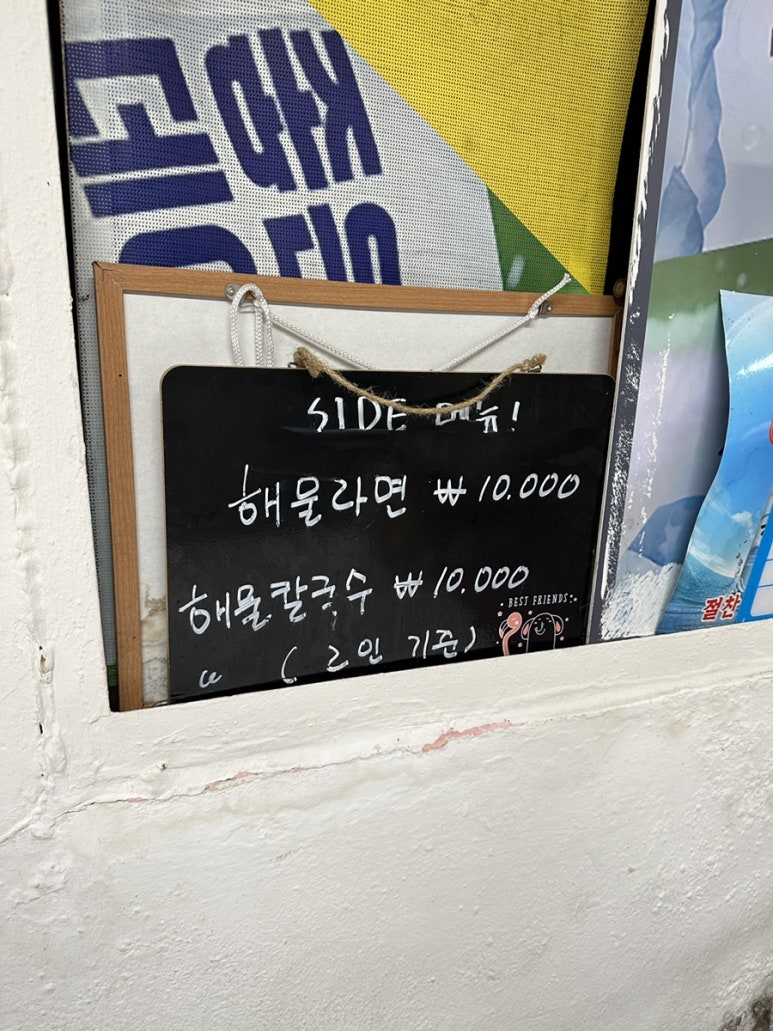 SIDE 메뉴!
해물라면 ₩ 10.000
해물칼국수 ₩ 10.000
(2인 기준)
BEST FRIENDS
절찬